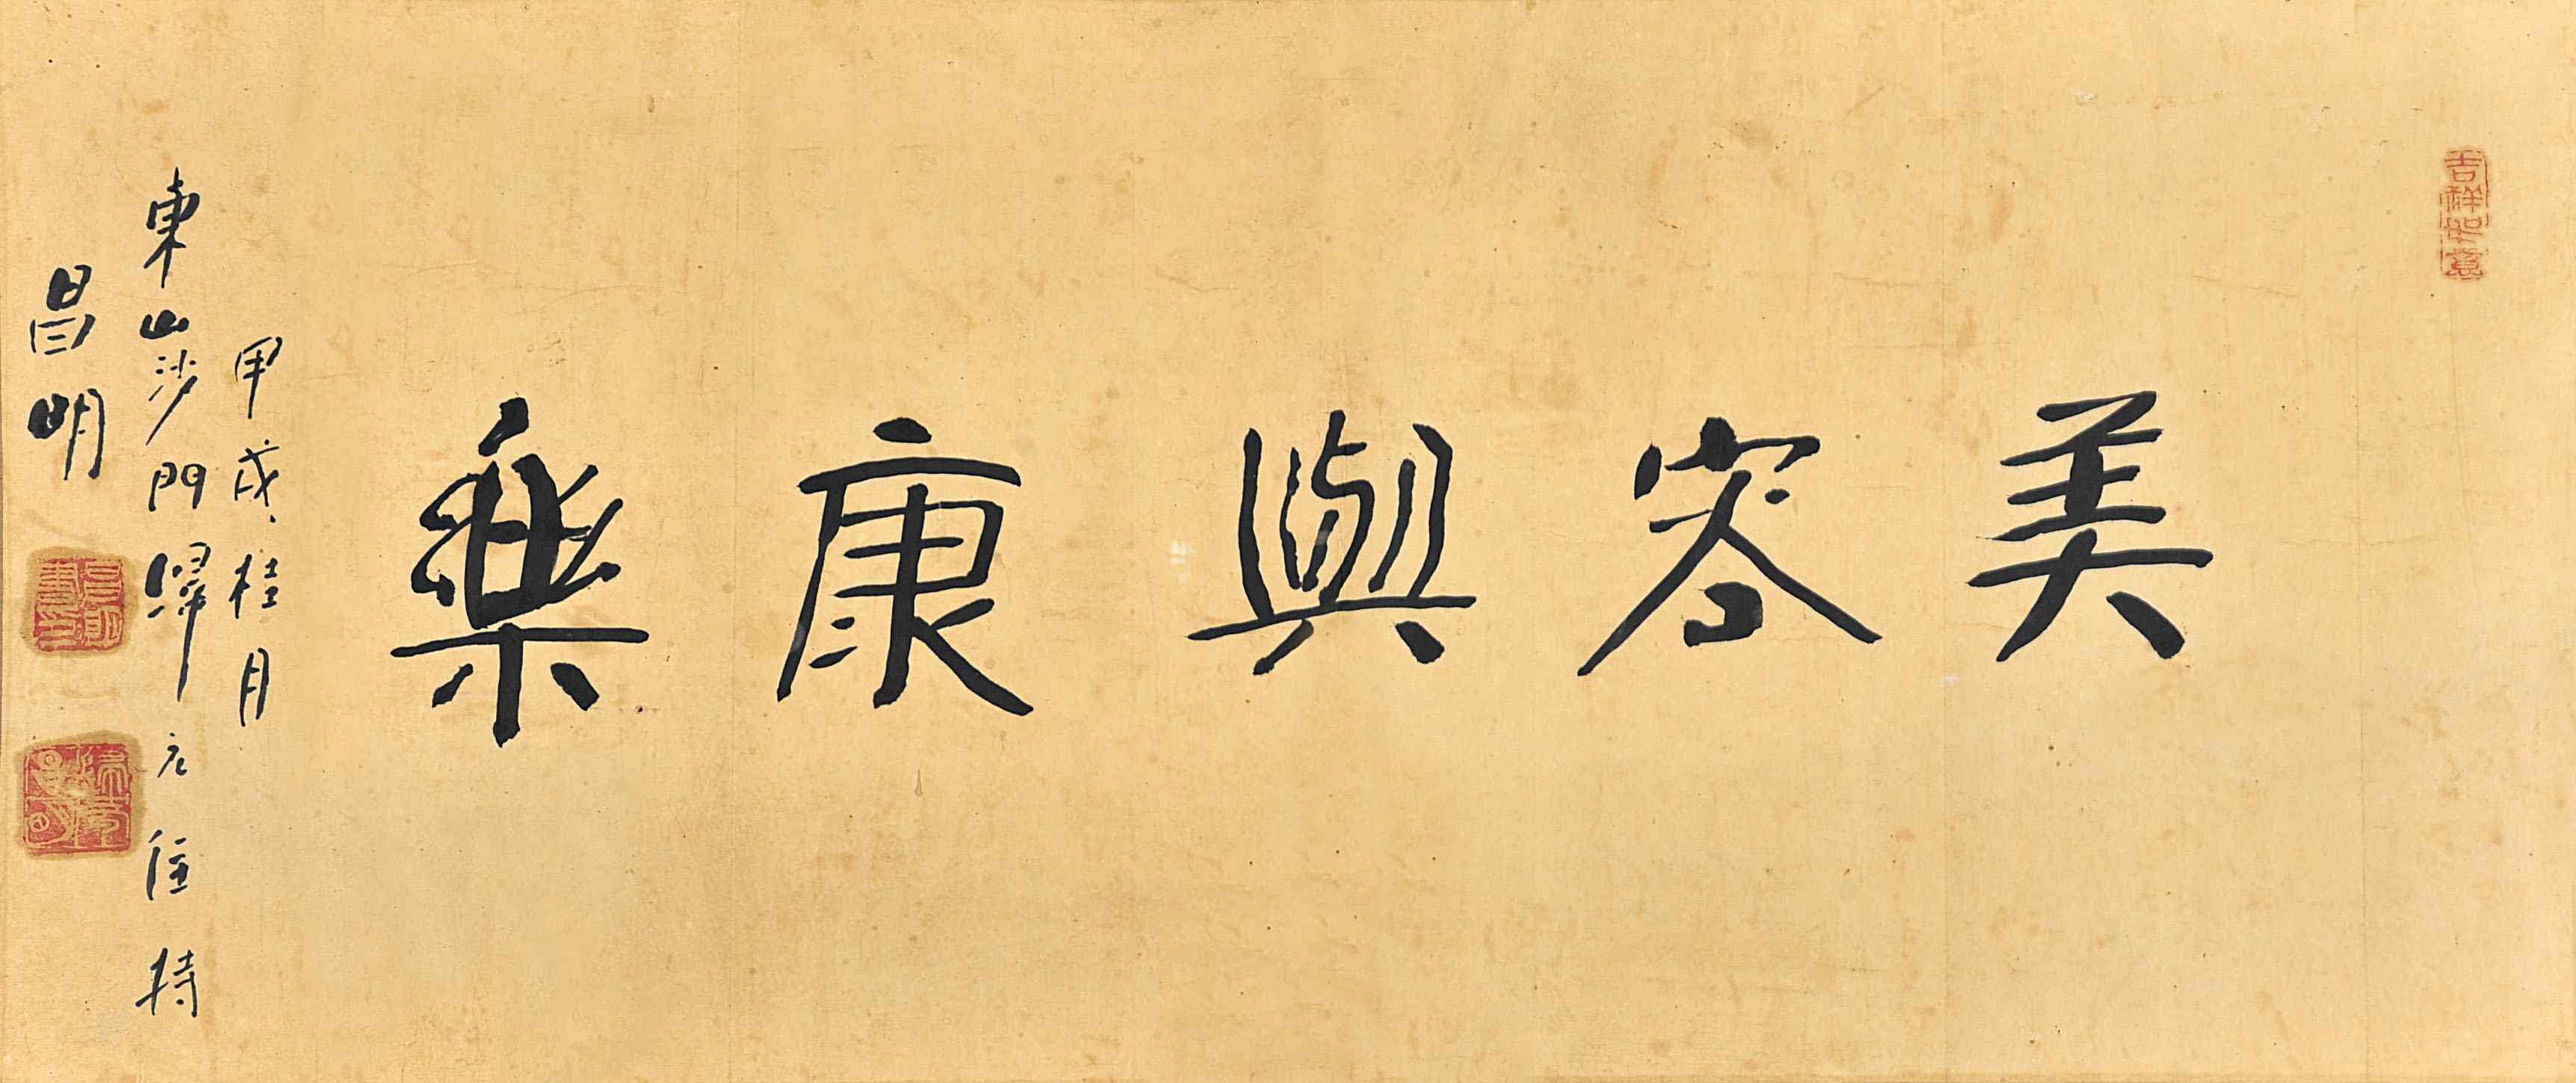 吉祥如意
美容與康樂
甲戌桂月
東山沙門歸元住持
昌明